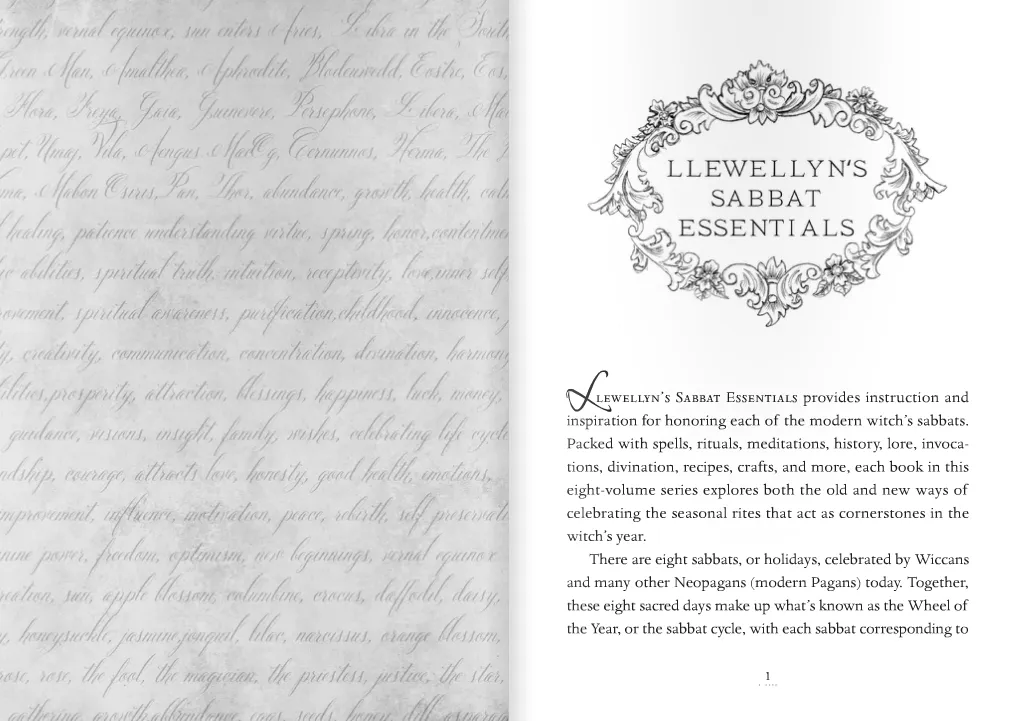 rength, vernal equinox, sun enters Aries, Libra in the South,
Green Man, Amalthea, Aphrodite, Blodeuwedd, Eostre, Eos,
Flora, Freya, Gaia, Guinevere, Persephone, Libera, Ma
pet, Umaj, Vila, Aengus MacOg, Cernunnos, Herma, The
ma, Mabon Osiris, Pan, Thor, abundance, growth, health, cal
healing, patience understanding virtue, spring, honor, contentme
ic abilities, spiritual truth, intuition, receptivity, love, inner self
ovement, spiritual awareness, purification, childhood, innocence,
y, creativity, communication, concentration, divination, harmony
bilities, prosperity, attraction, blessings, happiness, luck, money,
guidance, visions, insight, family, wishes, celebrating life cycle
ndship, courage, attracts love, honesty, good health, emotions,
mprovement, influence, motivation, peace, rebirth, self preservati
inine power, freedom, optimism, new beginnings, vernal equinox
reation, sun, apple blossom, columbine, crocus, daffodil, daisy,
y, honeysuckle, jasmine, jonquil, lilac, narcissus, orange blossom,
rose, rose, the fool, the magician, the priestess, justice, the star,
gathering, growth, abundance, eggs, seeds, honey, dill, asparag
LLEWELLYN'S
SABBAT
ESSENTIALS
Llewellyn's Sabbat Essentials provides instruction and
inspiration for honoring each of the modern witch's sabbats.
Packed with spells, rituals, meditations, history, lore, invoca-
tions, divination, recipes, crafts, and more, each book in this
eight-volume series explores both the old and new ways of
celebrating the seasonal rites that act as cornerstones in the
witch's year.
There are eight sabbats, or holidays, celebrated by Wiccans
and many other Neopagans (modern Pagans) today. Together,
these eight sacred days make up what's known as the Wheel of
the Year, or the sabbat cycle, with each sabbat corresponding to
1